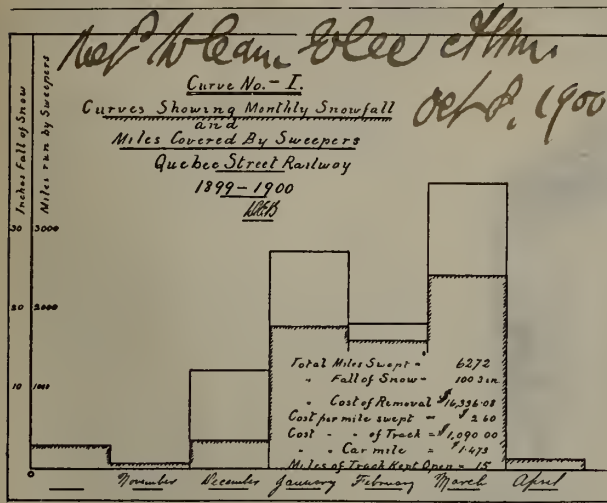 Oct 8, 1900
Curve No. - I.
Curves Showing Monthly Snowfall
and
Miles Covered By Sweepers
Quebec Street Railway
1899-1900
Inches Fall of Snow
Miles run by Sweepers
30 3000
20 2000
10 1000
Total Miles Swept = 6272
" Fall of Snow - 100.3 in
" Cost of Removal $16,336.08
Cost per mile swept = $2.60
Cost - - of Track = $1,090.00
" " Car mile = $1.473
Miles of Track Kept Open = 15
November December January February March April